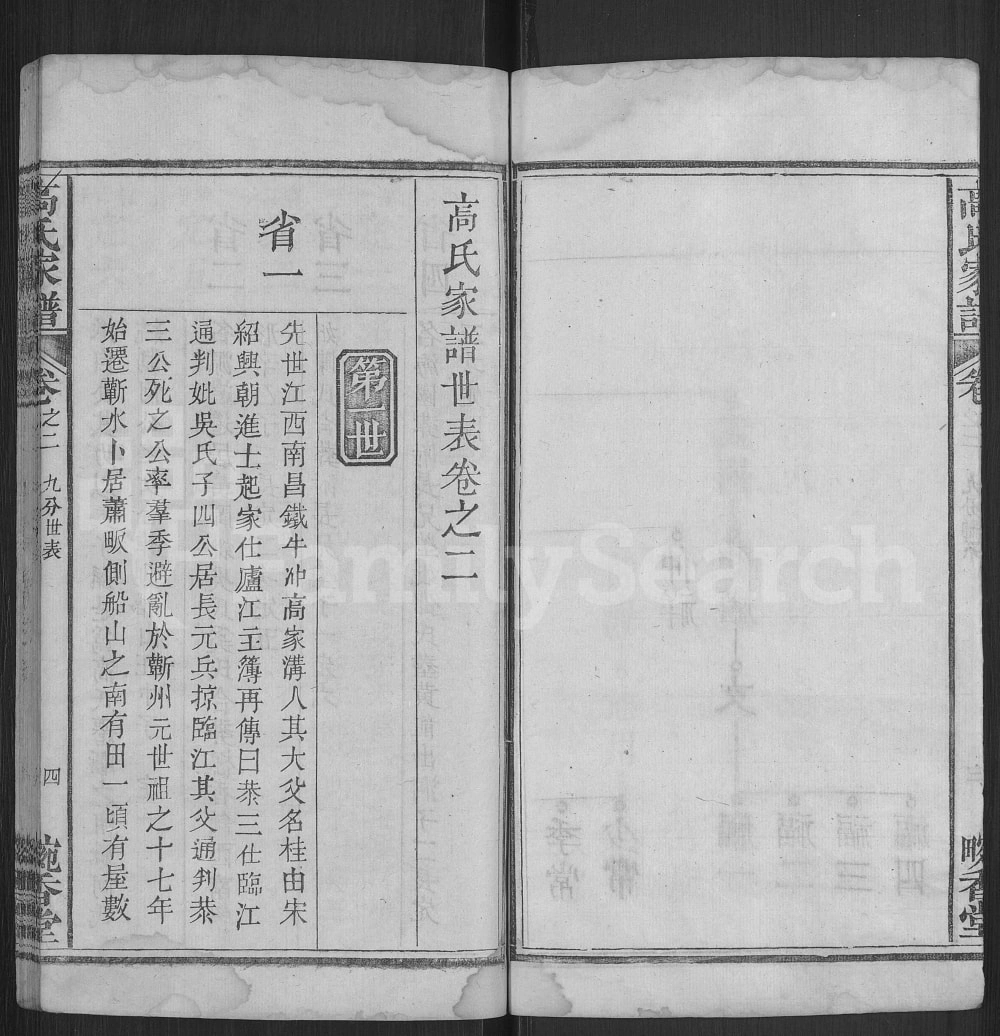 高氏家譜世表卷之二
第一世
省一
先世江西南昌鐵牛冲高家溝人其大父名桂由宋
紹興朝進士起家仕廬江主簿再傳曰恭三仕臨江
通判妣吳氏子四公居長元兵掠臨江其父通判恭
三公死之公率羣季避亂於蘄州元世祖之十七年
始遷蘄水卜居蕭畈側船山之南有田一頃有屋數
高氏家譜
卷之二
九分世表
四
晚香堂
高氏家譜
卷
晚香堂
FamilySearch